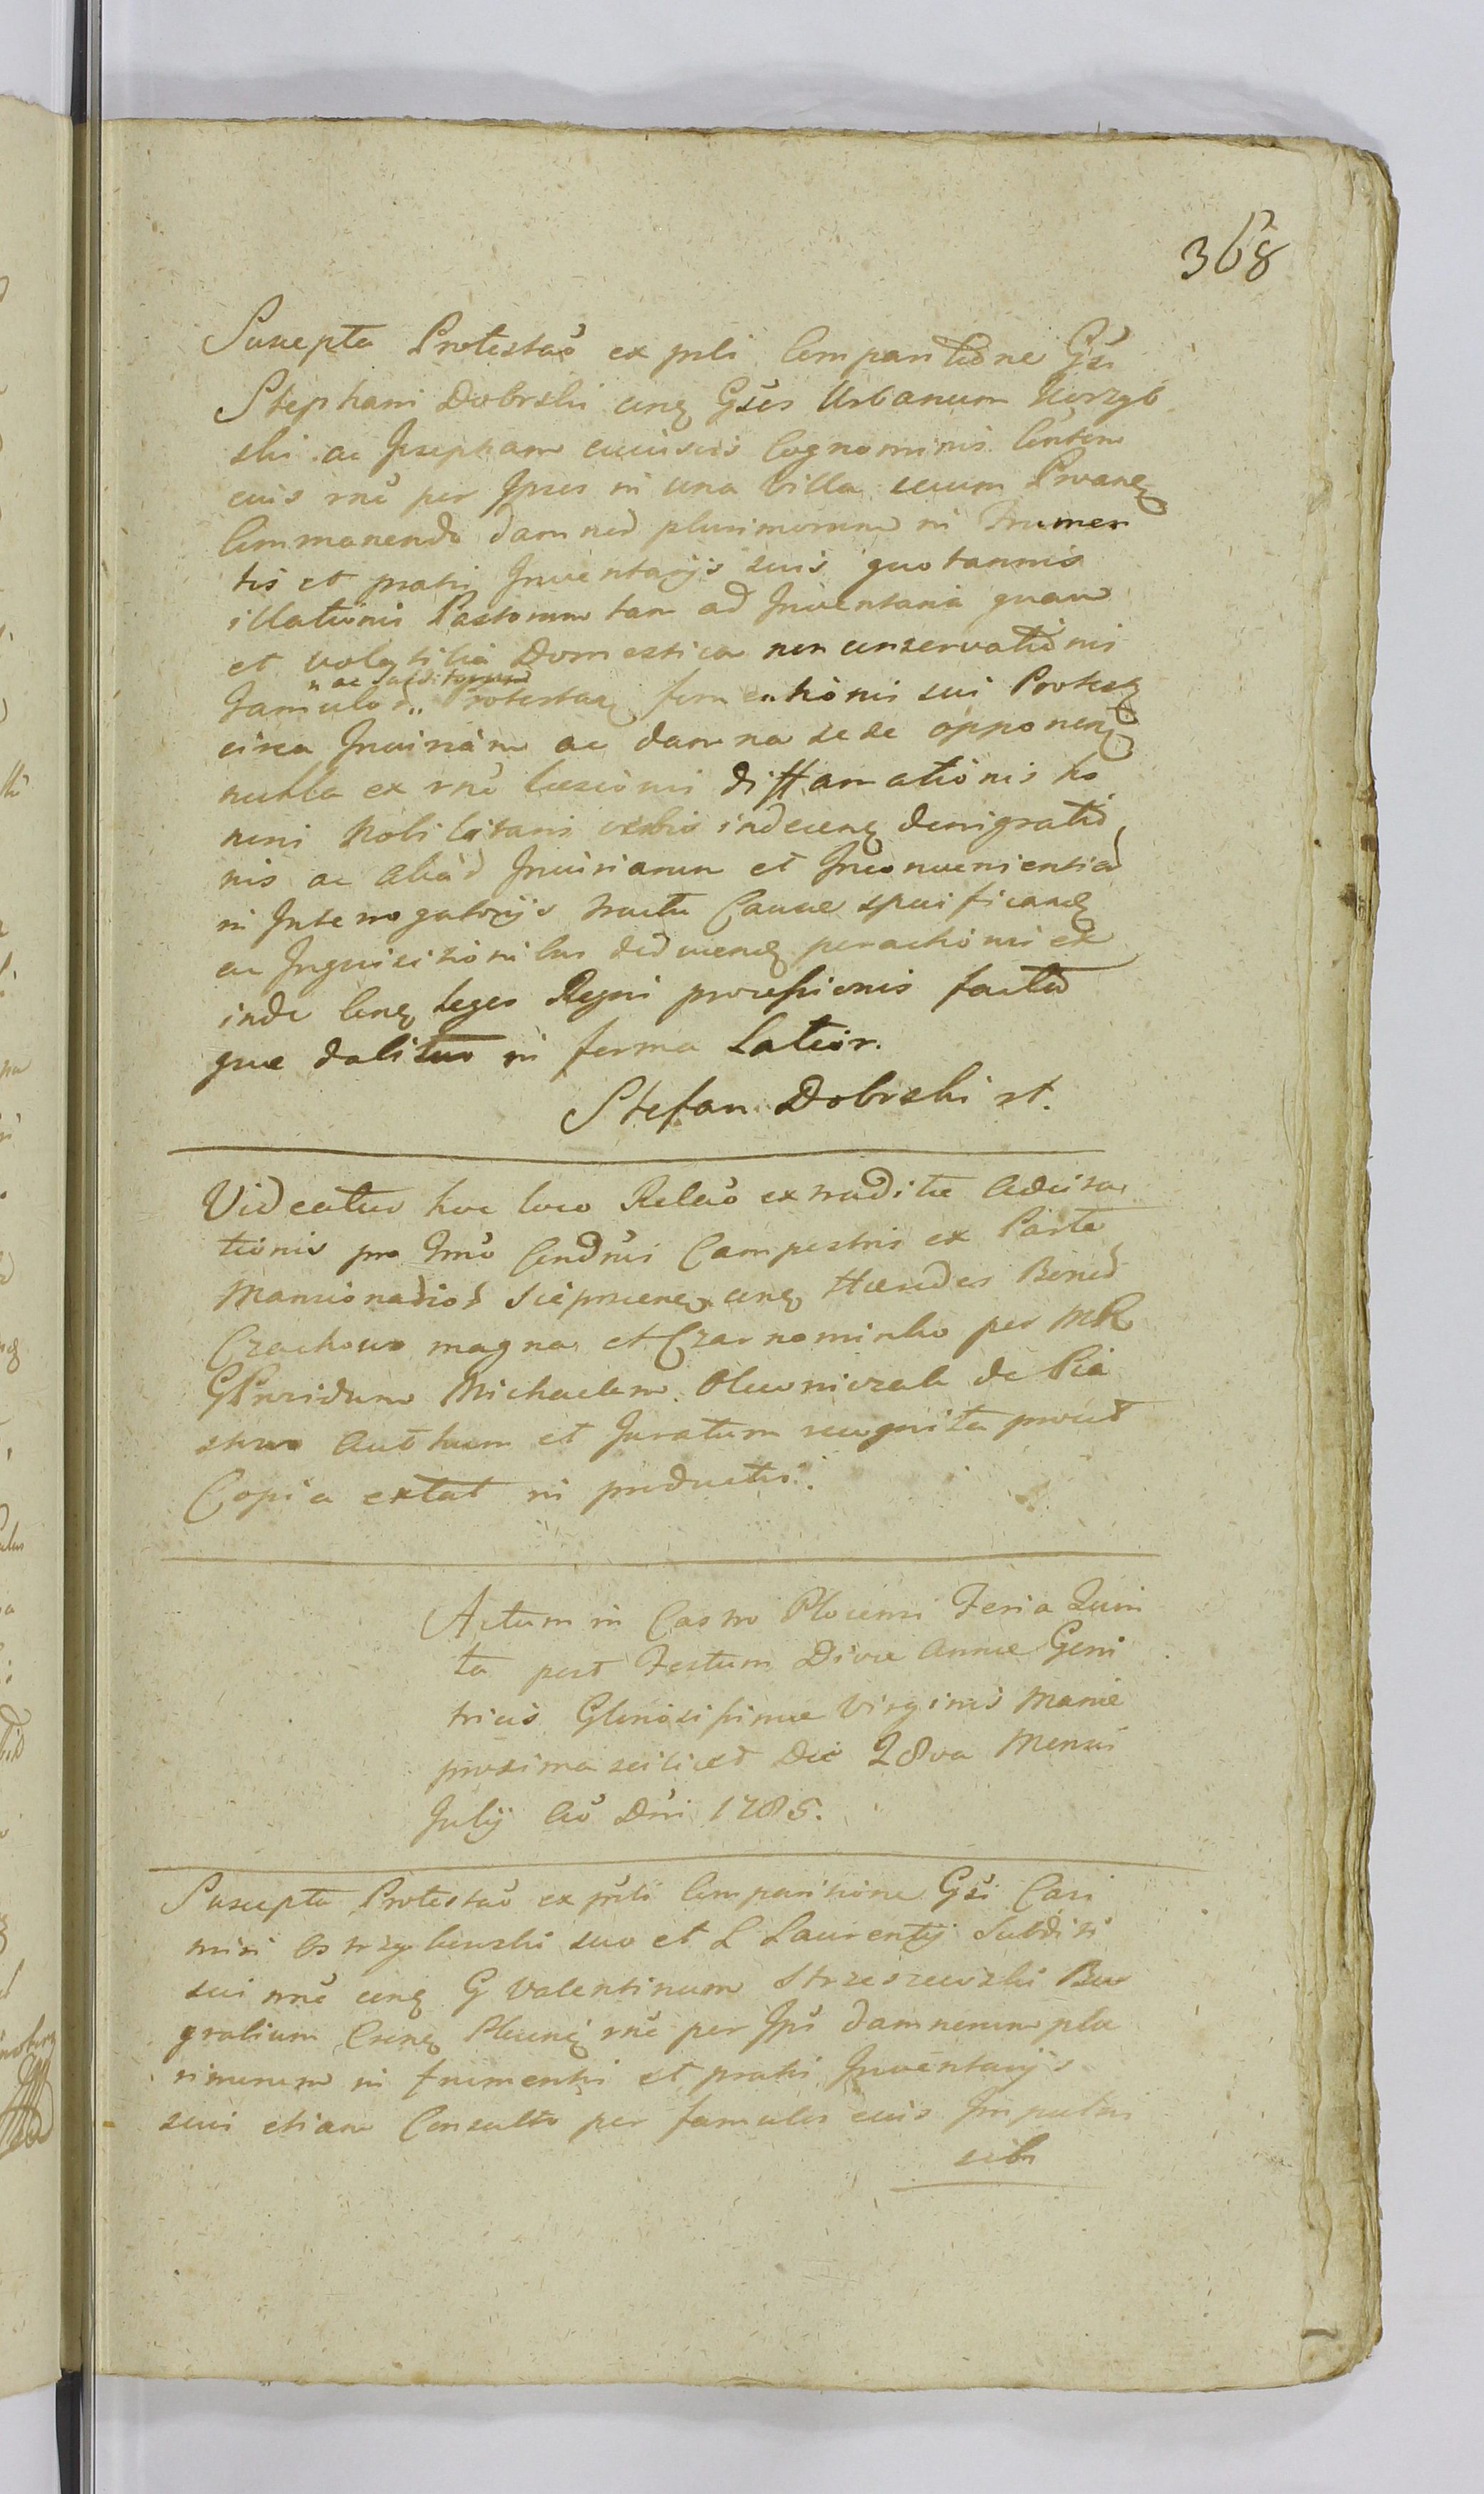 368
Suscepta Protestaõ ex pñti Comparitione Gsi
Stephani Dobrski cnq Gsos Urbanum Korzyb
ski ac Josepham cuiusvis Cognominis Conten
eius rnẽ per Ipsos in una Villa secum Prvanq
Commanendo damnod plurimorum in Frumen
tis et pratis Inventarijs suis quotannis
illationis Pastorum tam ad Inventaria quam
et volatilia Domestica non conservationis
Famulor" "ac Subditorum Protestaq fomentionis sui Protestq
circa Iniuriam ac damna sese opponenq
nulla ex rnẽ læsionis diffamationis ho
noris Nobilitaris verbis indecenq denigratio
nis ac aliad Iniuriarum et Inconvenientiad
in Interrogatorijs tractu Causæ specificandq
ac Inquisitionibus deducendq peractionis ex
inde Conq Leges Regni processionis factad
quæ dabitur in forma Latior.
Stefan Dobrski st.
Videatur hoc loco Relaõ extraditæ Adcita
tionis pro Imõ Condñi Campestris ex Parte
Mansionariod Sieprcenq cnq Hæredes Bonod
Czachowo magna et Czarnominko per MR
GPrvidum Michaelem Olewniczak de Pia
stwo Authum et Juratum recognita prout
Copia extat in productis.
Actum in Castro Plocensi Feria Quin
ta post Festum Divæ Annæ Geni
tricis Gloriosissimæ Virginis Mariæ
proxima scilicet Die 28va Mensis
Julij Aõ Dñi 1785.
Suscepta Protestaõ ex pñti Comparitione Gsi Casi
miri Ostrzykowski suo et L Laurentij Subditi
sui nnẽ cnq G Valentinum Strzeszewski Bur
grabium Crenq Plocenq rnẽ per Ips damnorum plu
rimorum in frumentis et pratis Inventarijs
suis etiam Consulto per famulos eius Impulsu
sibi